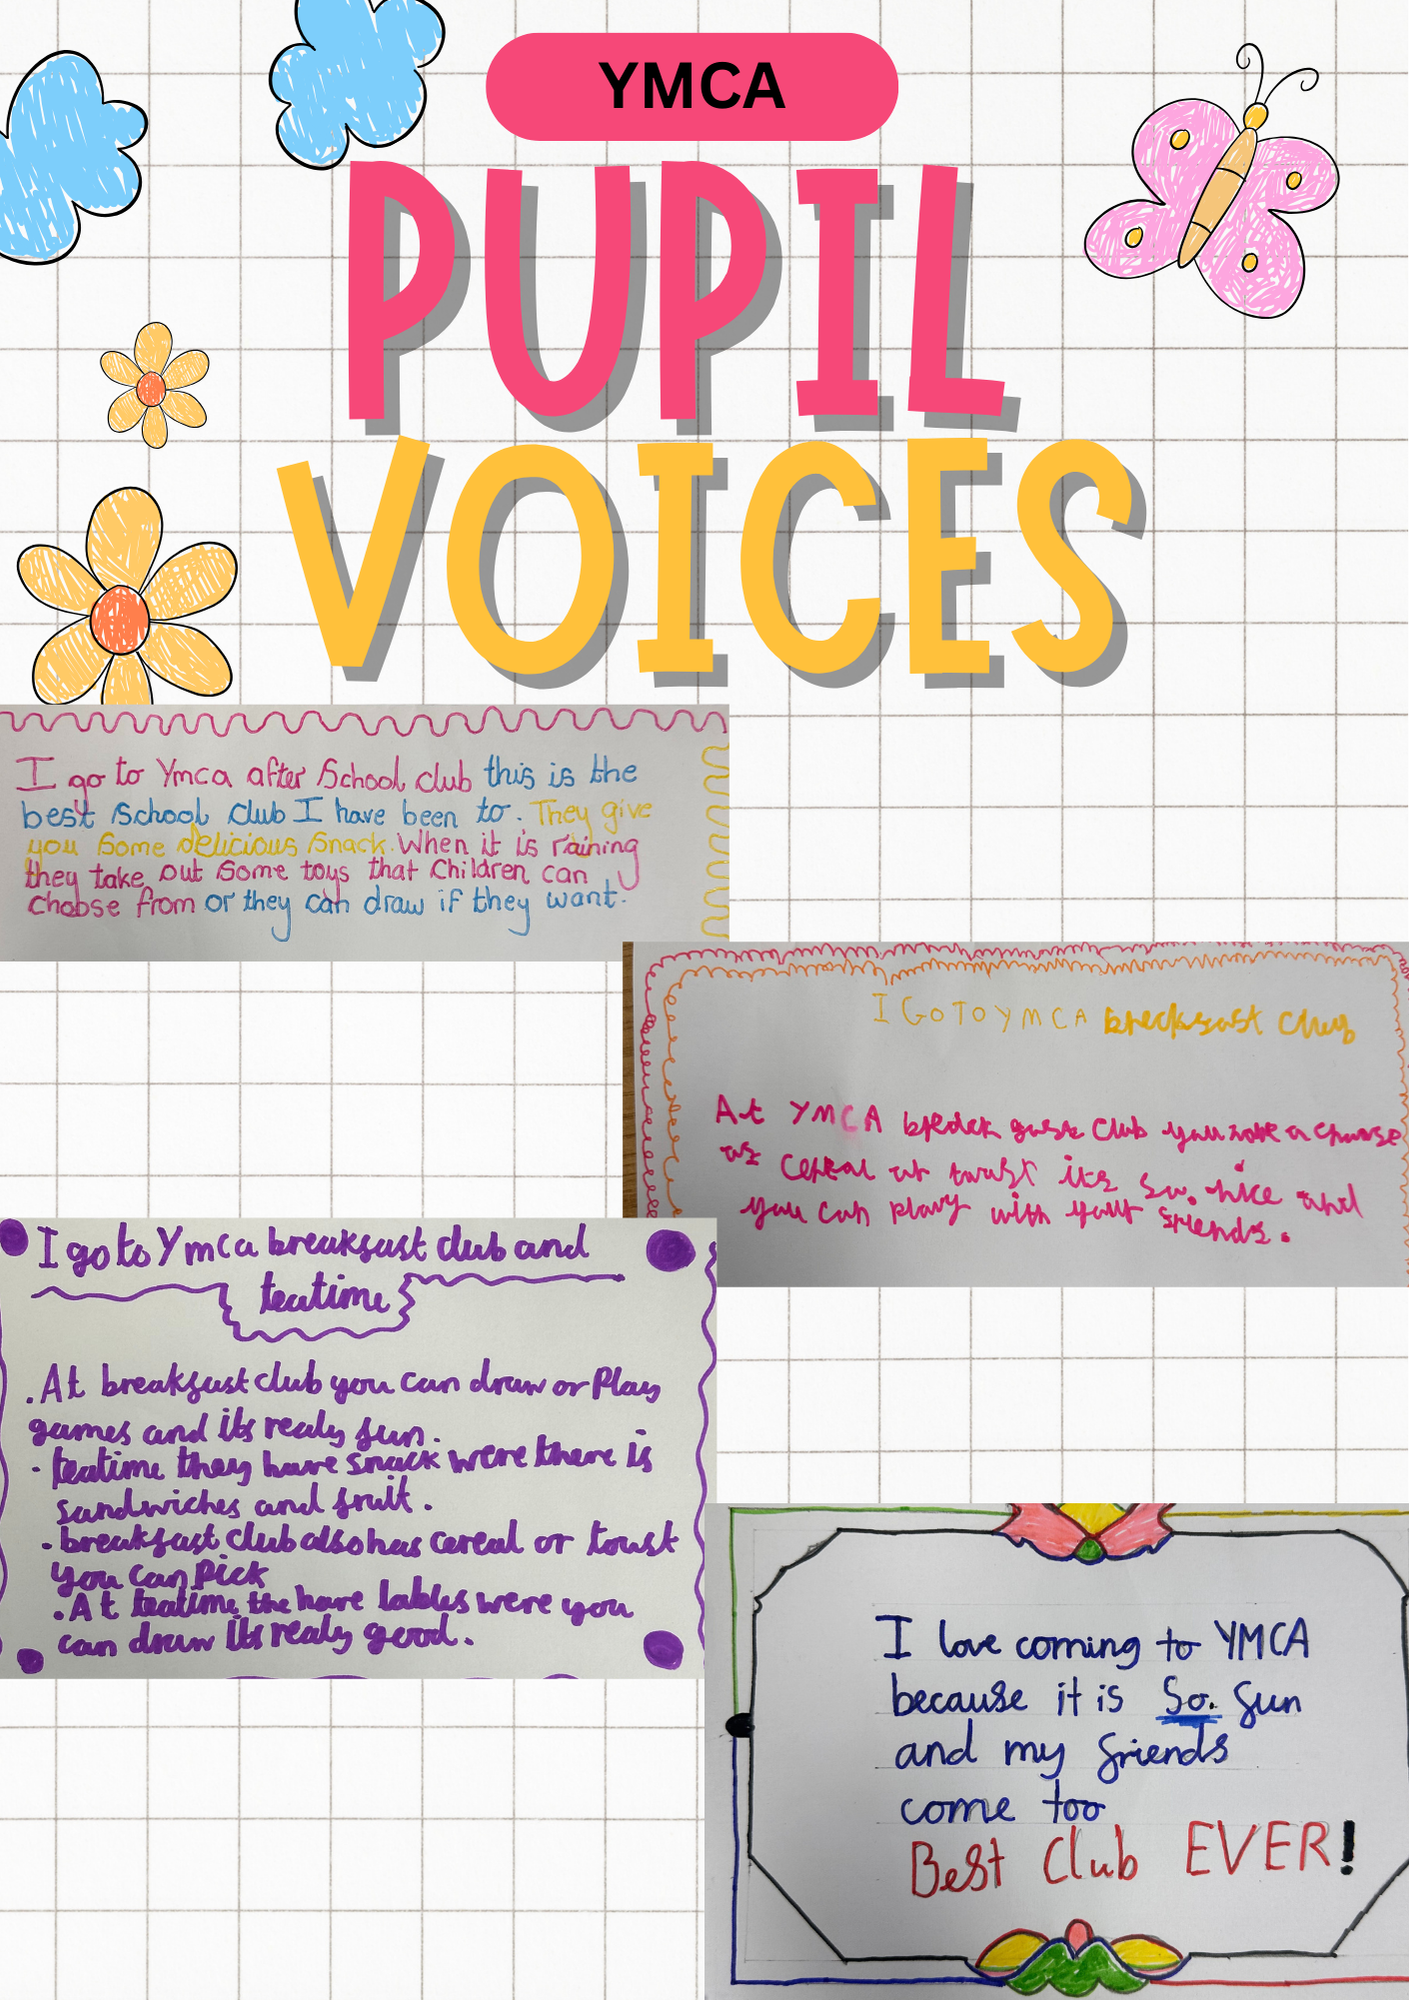 YMCA
PUPIL
VOICES
I go to Ymca after School club this is the
best School club I have been to. They give
you some delicious snack. When it is raining
they take out some toys that Children can
choose from or they can draw if they want.
I GO TO YMCA breckfast Club
At YMCA break fast Club you
as cereal or toast its so. nice and
you can play with your friends.
I go to Ymca breakfast club and
teatime
.At breakfast club you can draw or Play
games and its realy fun.
. teatime they have snack were there is
sandwiches and fruit.
. breakfast club also has cereal or toast
you can pick
.At teatime the have tables were you
can draw its realy good.
I love coming to YMCA
because it is So. fun
and my friends
come too
Best Club EVER!